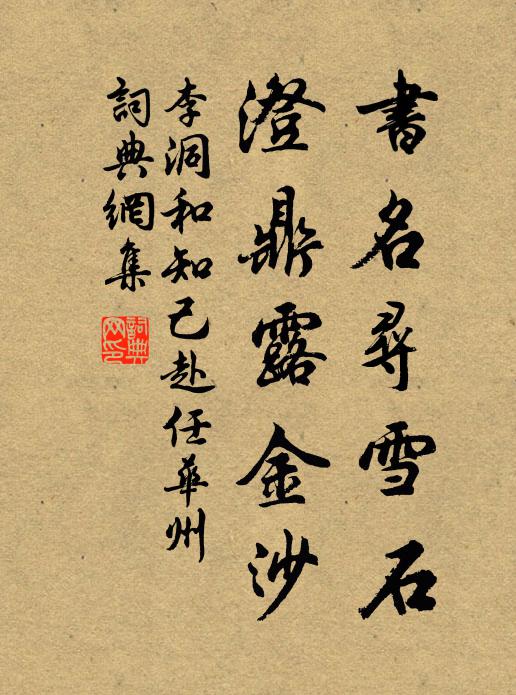 書名尋雪石
澄鼎露金沙
李洞和知己赴任華州
詞典網集
詞典網印